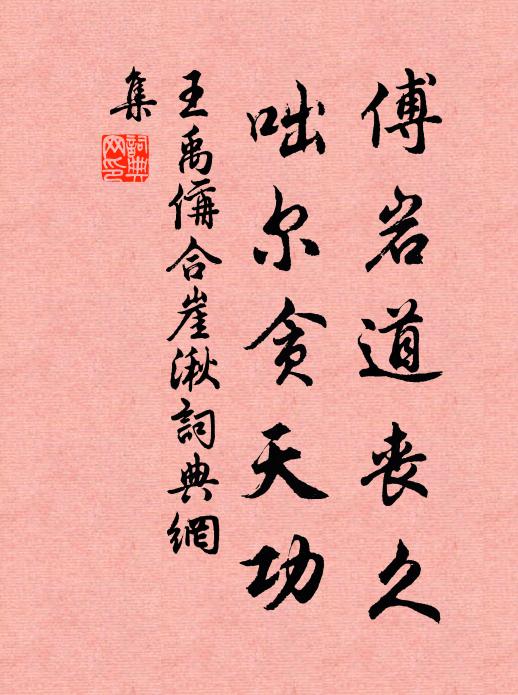 傅岩道丧久
咄尔贪天功
王禹偁合崖湫詞典網
集
詞典网印